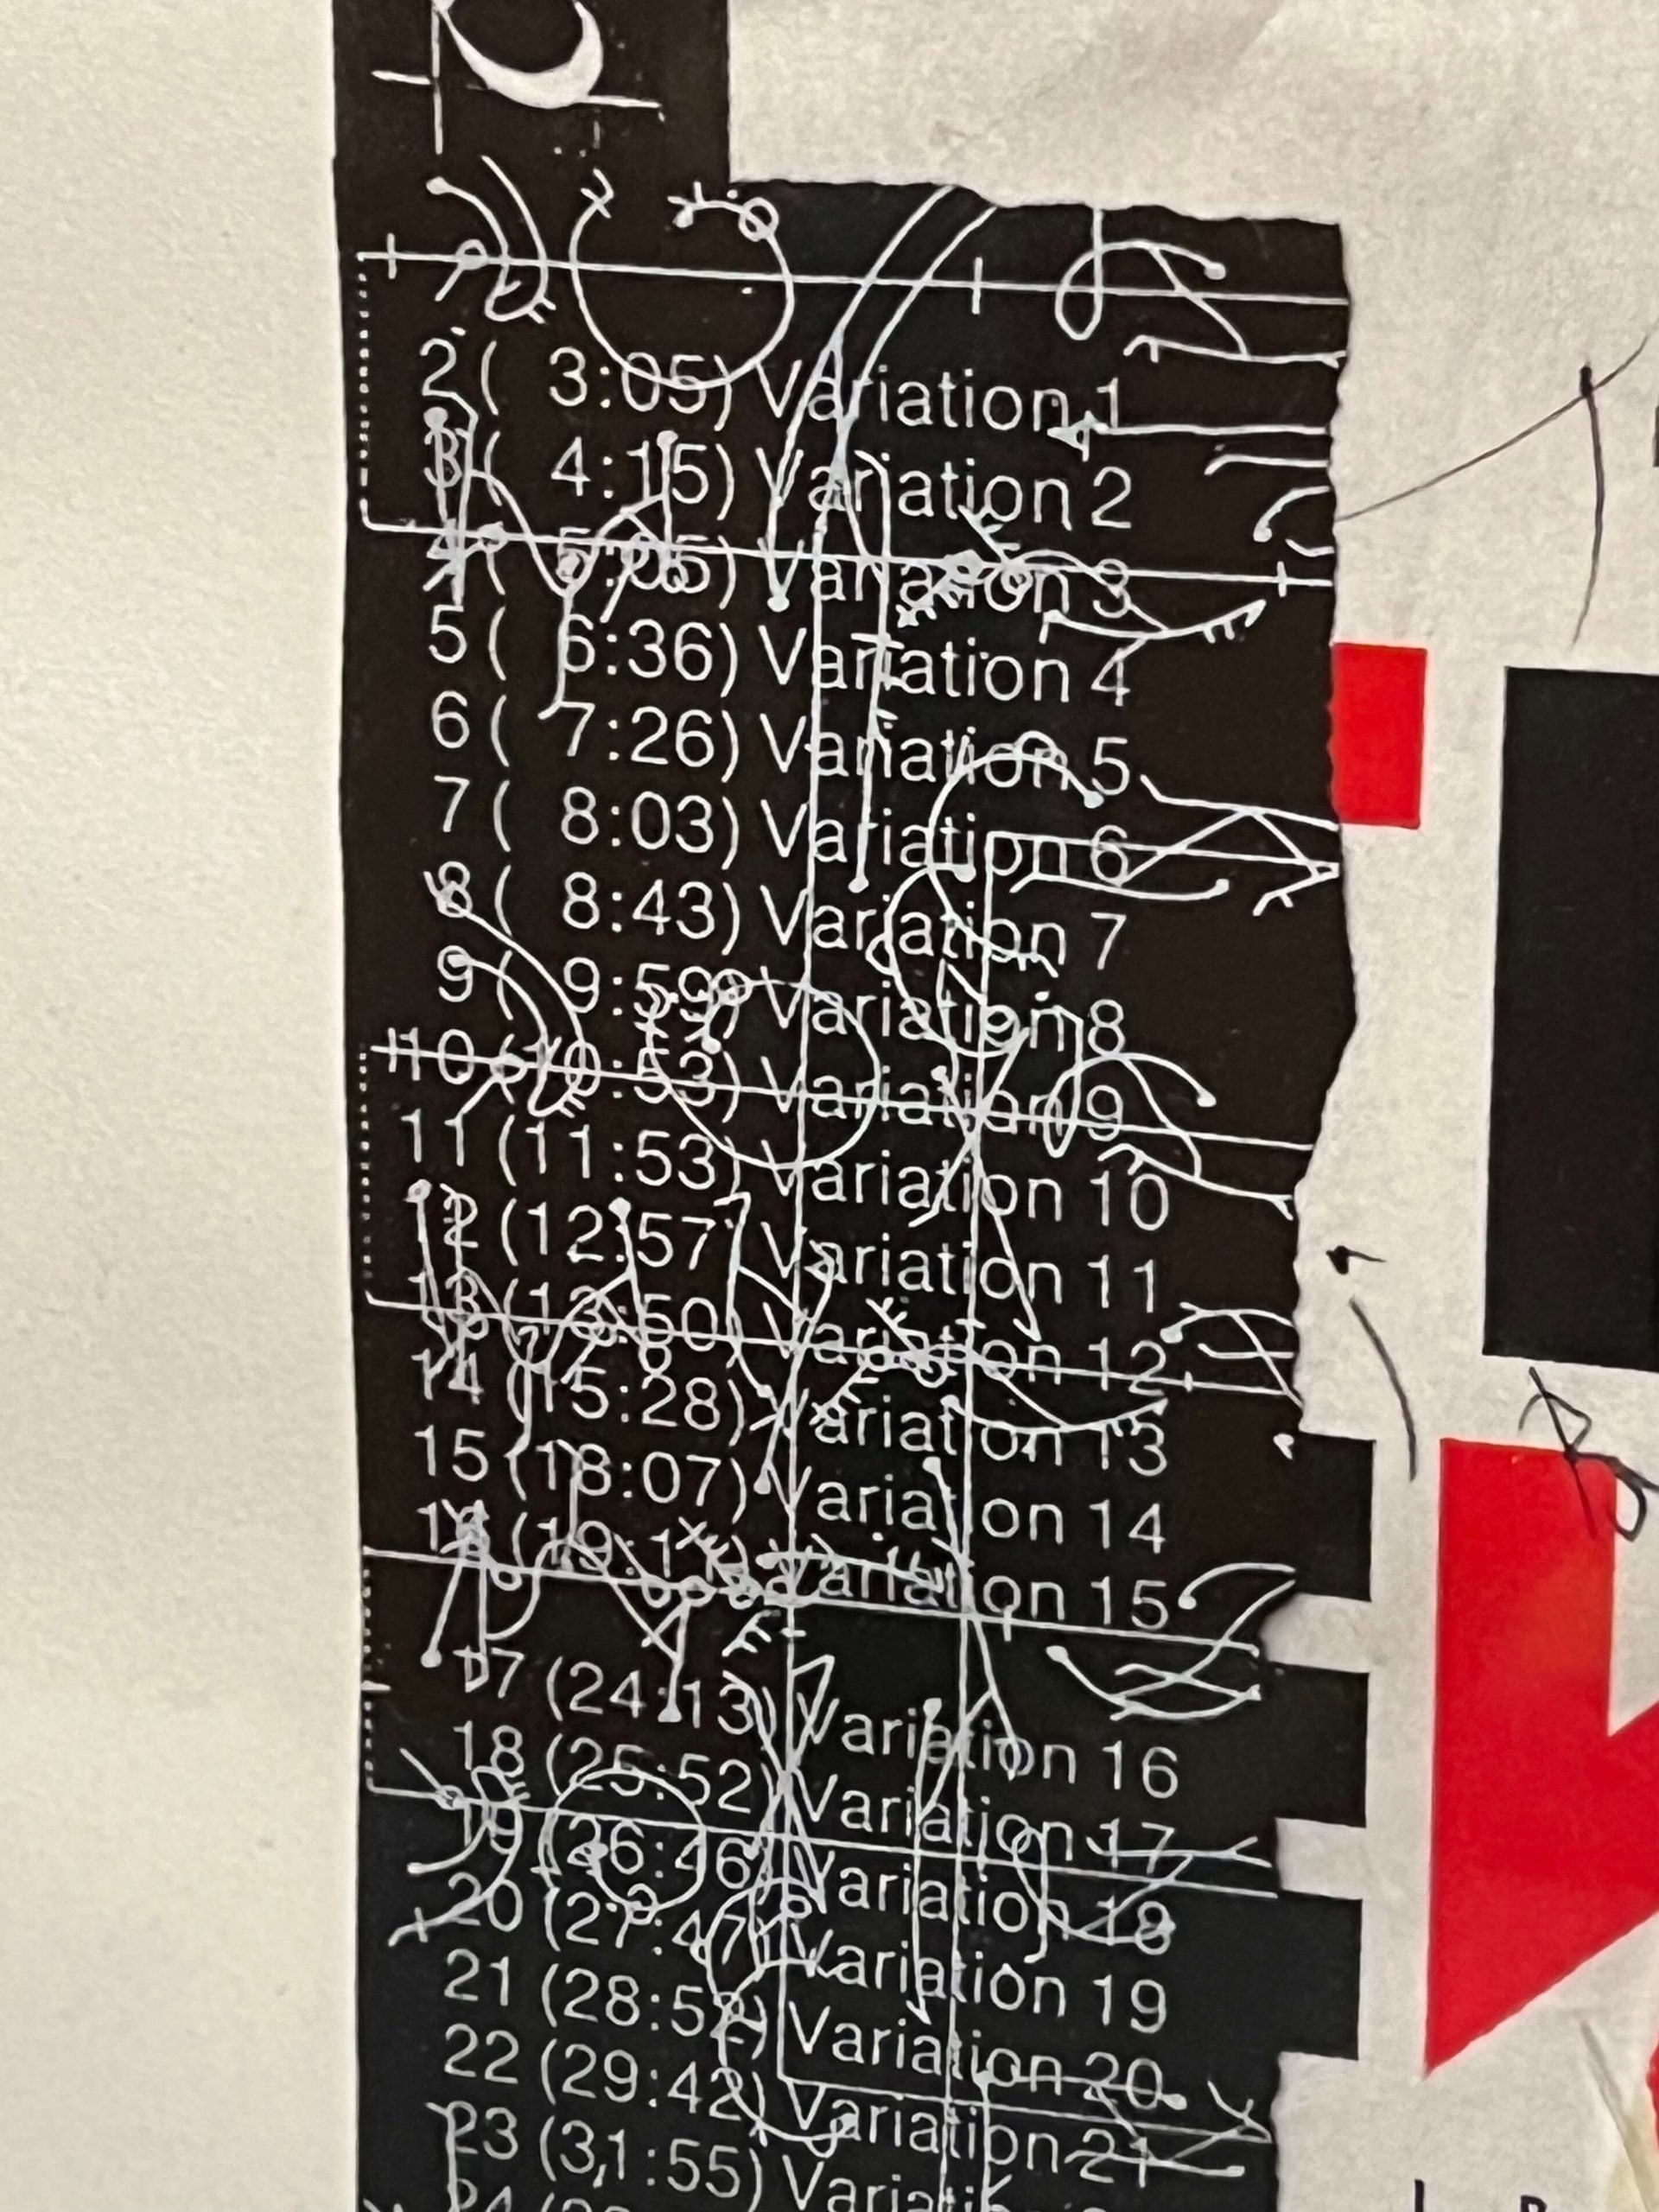 2 ( 3:05) Variation 1
3 ( 4:15) Variation 2
4 ( 5:05) Variation 3
5 ( 6:36) Variation 4
6 ( 7:26) Variation 5
7 ( 8:03) Variation 6
8 ( 8:43) Variation 7
9 ( 9:59) Variation 8
10 (10:53) Variation 9
11 (11:53) Variation 10
12 (12:57) Variation 11
13 (13:50) Variation 12
14 (15:28) Variation 13
15 (18:07) Variation 14
Variation 15
17 (24:13) Variation 16
18 (25:52) Variation 17
19 (26:46) Variation 18
20 (27:47) Variation 19
21 (28:52) Variation 20
22 (29:42) Variation 21
23 (31:55)